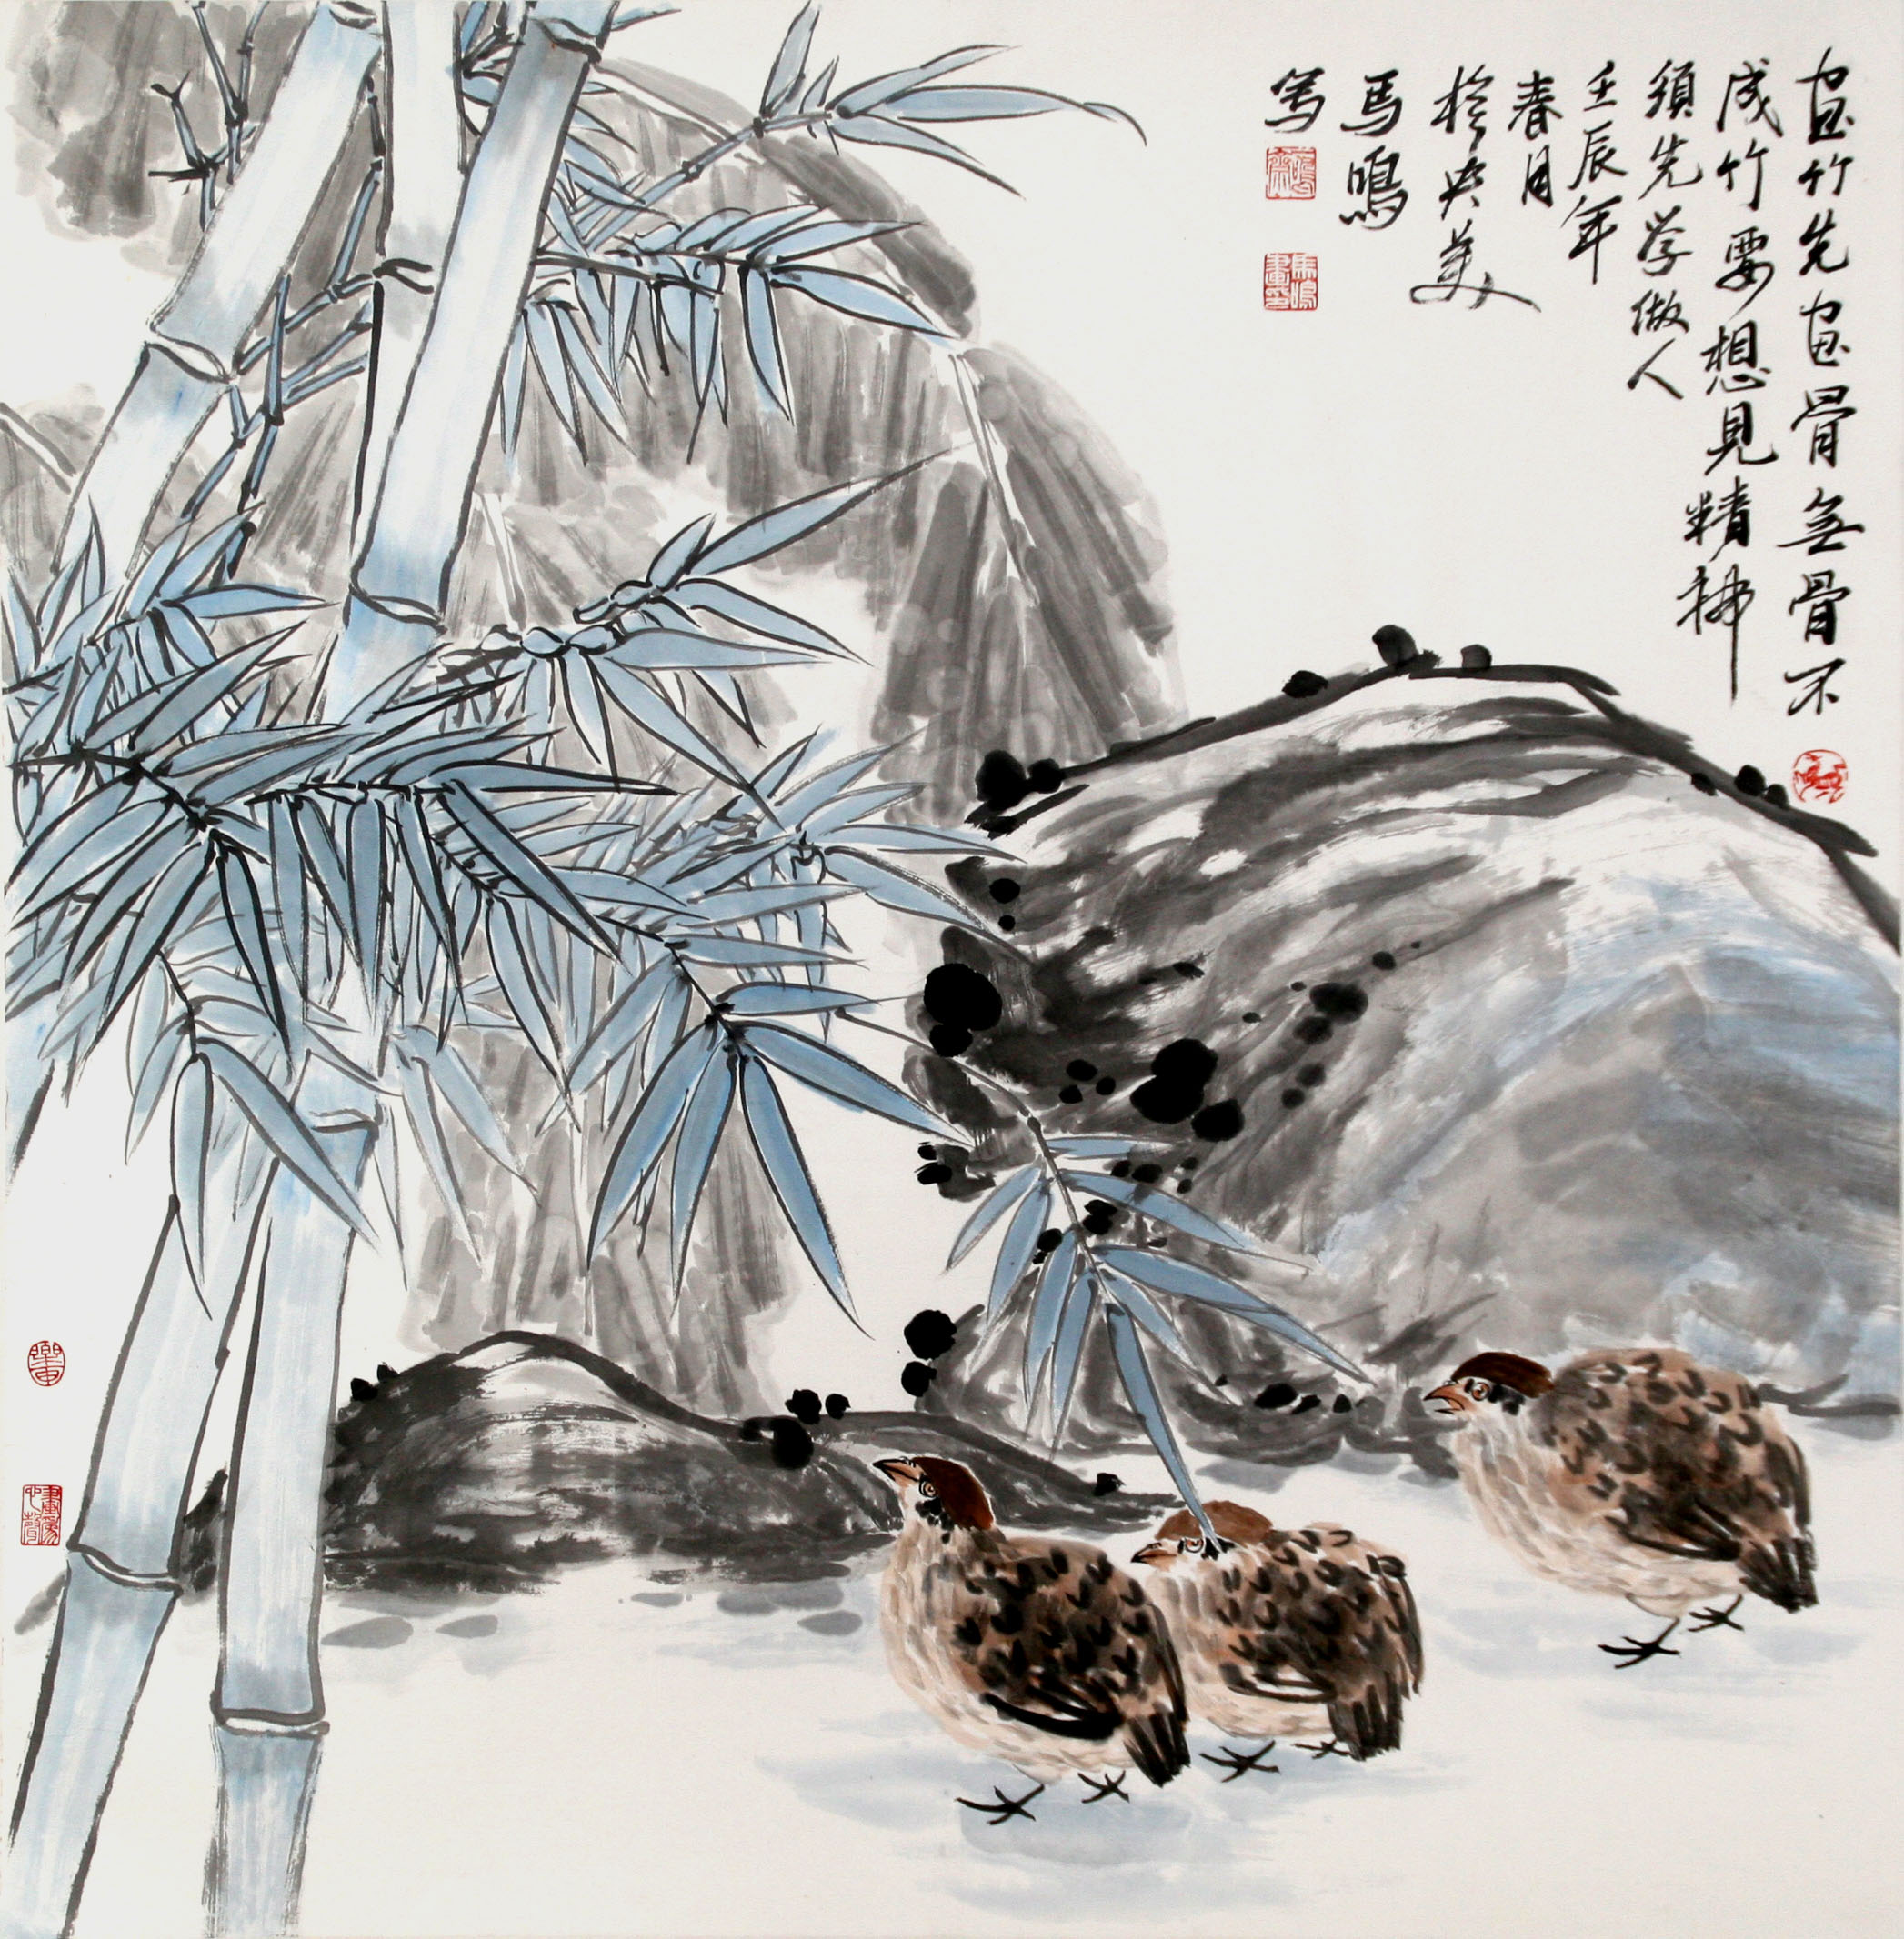 画竹先画骨無骨不
成竹要想見精神
須先学做人
壬辰年
春月
於央美
馬鳴
写
馬鳴畫印